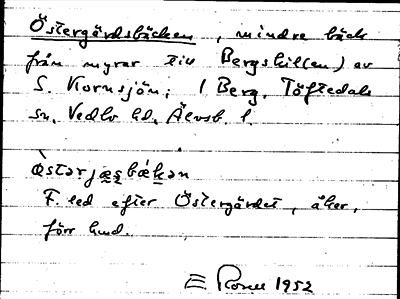 Östergärdsbäcken, mindre bäck
från myrar till Bergskil(en) av
S. Kornsjön; 1 Berg, Töftedals
sn, Vedbo hd, Älvsb. l.
östərjæsbækən
F. led efter Östergärdet, åker,
förr hmd.
1952